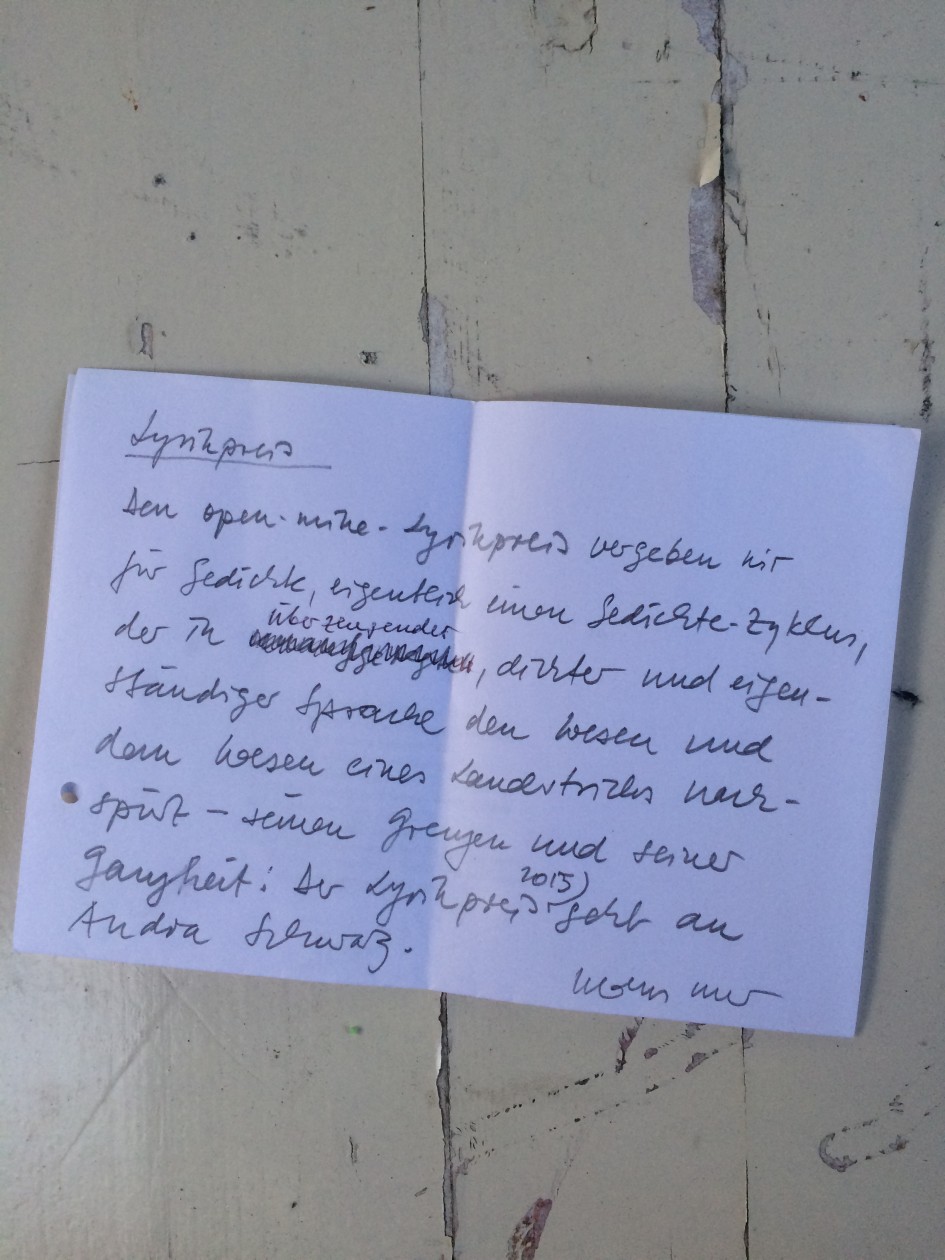 Lyrikpreis
Den open-mike-Lyrikpreis vergeben wir
für Gedichte, eigentlich einen Gedichte-Zyklus,
überzeugender
der in , dichter und eigen-
ständiger Sprache den Wesen und
dem Wesen eines Landstrichs nach-
spürt – seinen Grenzen und seiner
Ganzheit: Der Lyrikpreis 2015 geht an
Andra Schwarz.